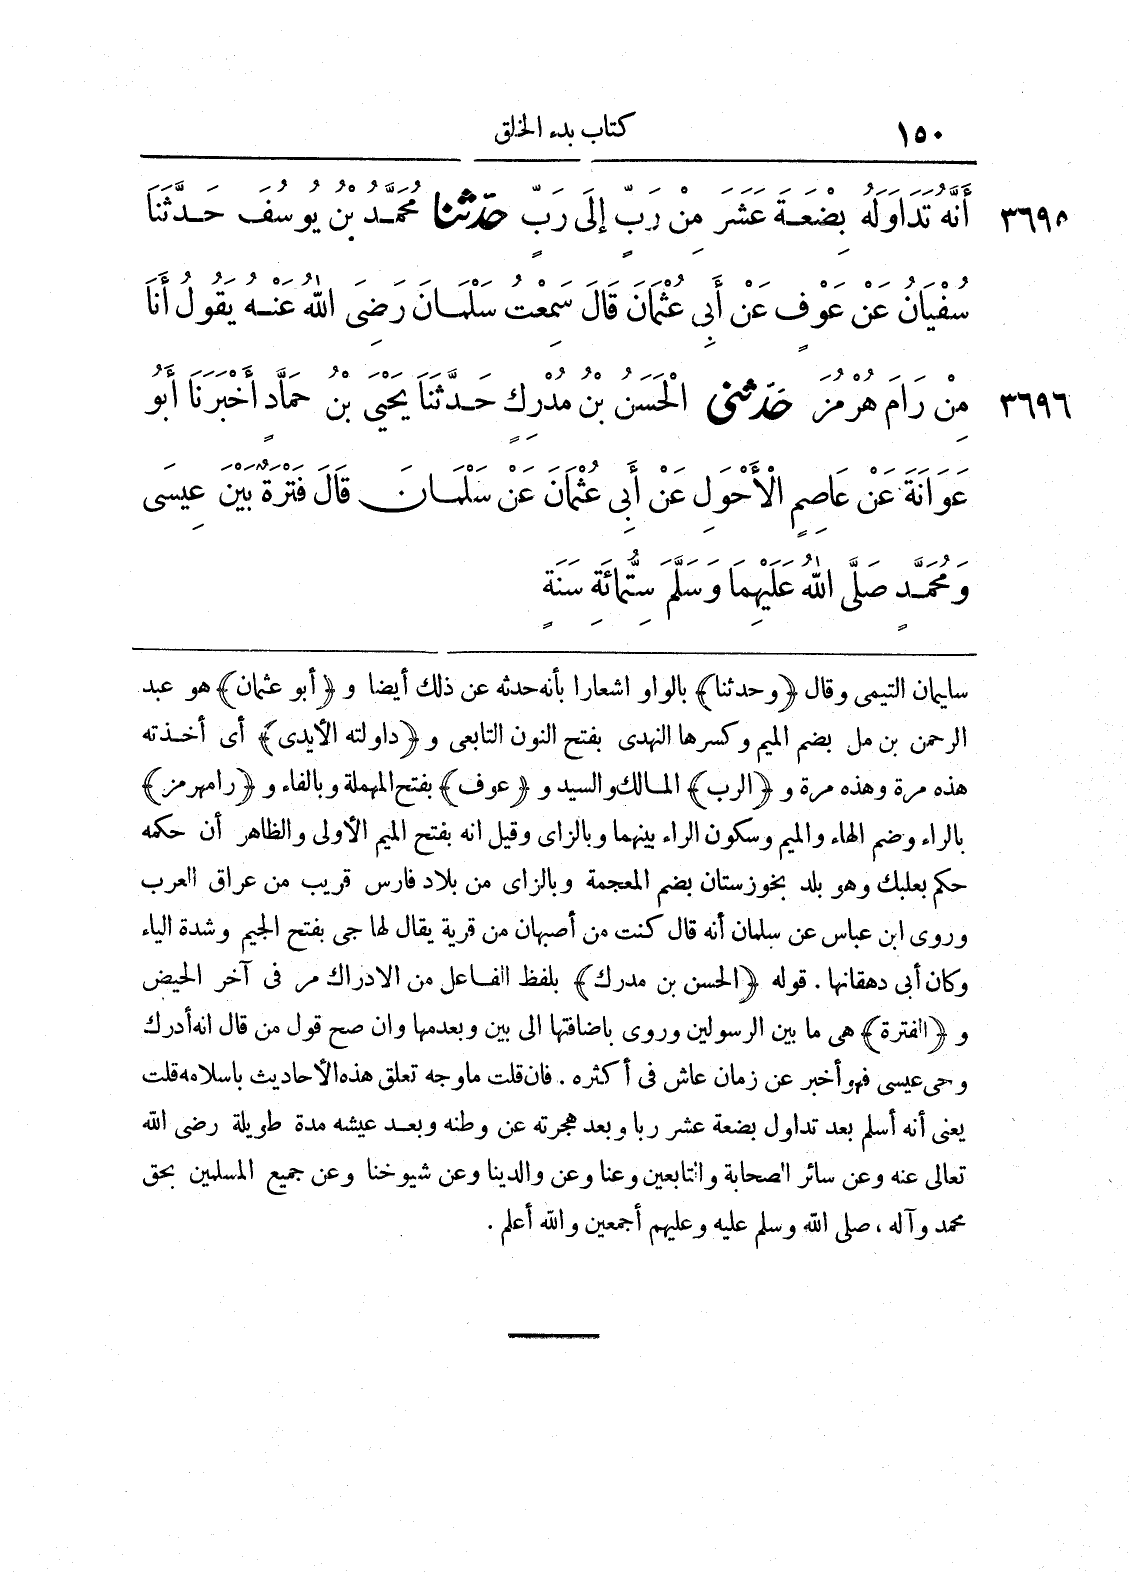 ١٥٠ كتاب بدء الخلق
٣٦٩٥ أَنَّهُ تَدَاوَلَهُ بِضْعَةَ عَشَرَ مِنْ رَبٍّ إِلَى رَبٍّ حَدَّثَنَا مُحَمَّدُ بْنُ يُوسُفَ حَدَّثَنَا
سُفْيَانُ عَنْ عَوْفٍ عَنْ أَبِي عُثْمَانَ قَالَ سَمِعْتُ سَلْمَانَ رَضِيَ اللهُ عَنْهُ يَقُولُ أَنَا
٣٦٩٦ مِنْ رَامَ هُرْمُزَ حَدَّثَنِي الْحَسَنُ بْنُ مُدْرِكٍ حَدَّثَنَا يَحْيَى بْنُ حَمَّادٍ أَخْبَرَنَا أَبُو
عَوَانَةَ عَنْ عَاصِمٍ الْأَحْوَلِ عَنْ أَبِي عُثْمَانَ عَنْ سَلْمَانَ قَالَ فَتْرَةٌ بَيْنَ عِيسَى
وَمُحَمَّدٍ صَلَّى اللهُ عَلَيْهِمَا وَسَلَّمَ سِتُّمِائَةِ سَنَةٍ
سليمان التيمى وقال ﴿وحدثنا﴾ بالواو اشعارا بأنه حدثه عن ذلك أيضا و ﴿أبو عثمان﴾ هو عبد
الرحمن بن مل بضم الميم وكسرها النهدى بفتح النون التابعى و ﴿داولته الأيدى﴾ أى أخذته
هذه مرة وهذه مرة و ﴿الرب﴾ المالك والسيد و ﴿عوف﴾ بفتح المهملة وبالفاء و ﴿رامهرمز﴾
بالراء وضم الهاء والميم وسكون الراء بينهما وبالزاى وقيل انه بفتح الميم الأولى والظاهر أن حكمه
حكم بعلبك وهو بلد بخوزستان بضم المعجمة وبالزاى من بلاد فارس قريب من عراق العرب
وروى ابن عباس عن سلمان أنه قال كنت من أصبهان من قرية يقال لها جى بفتح الجيم وشدة الياء
وكان أبى دهقانها . قوله ﴿الحسن بن مدرك﴾ بلفظ الفاعل من الادراك مر فى آخر الحيض
و ﴿الفترة﴾ هى ما بين الرسولين وروى باضافتها الى بين وبعدمها وان صح قول من قال انه أدرك
وحى عيسى فهو أخبر عن زمان عاش فى أكثره . فان قلت ما وجه تعلق هذه الأحاديث باسلامه قلت
يعنى أنه أسلم بعد تداول بضعة عشر ربا وبعد هجرته عن وطنه وبعد عيشه مدة طويلة رضى الله
تعالى عنه وعن سائر الصحابة والتابعين وعنا وعن والدينا وعن شيوخنا وعن جميع المسلمين بحق
محمد وآله ، صلى الله وسلم عليه وعليهم أجمعين والله أعلم .